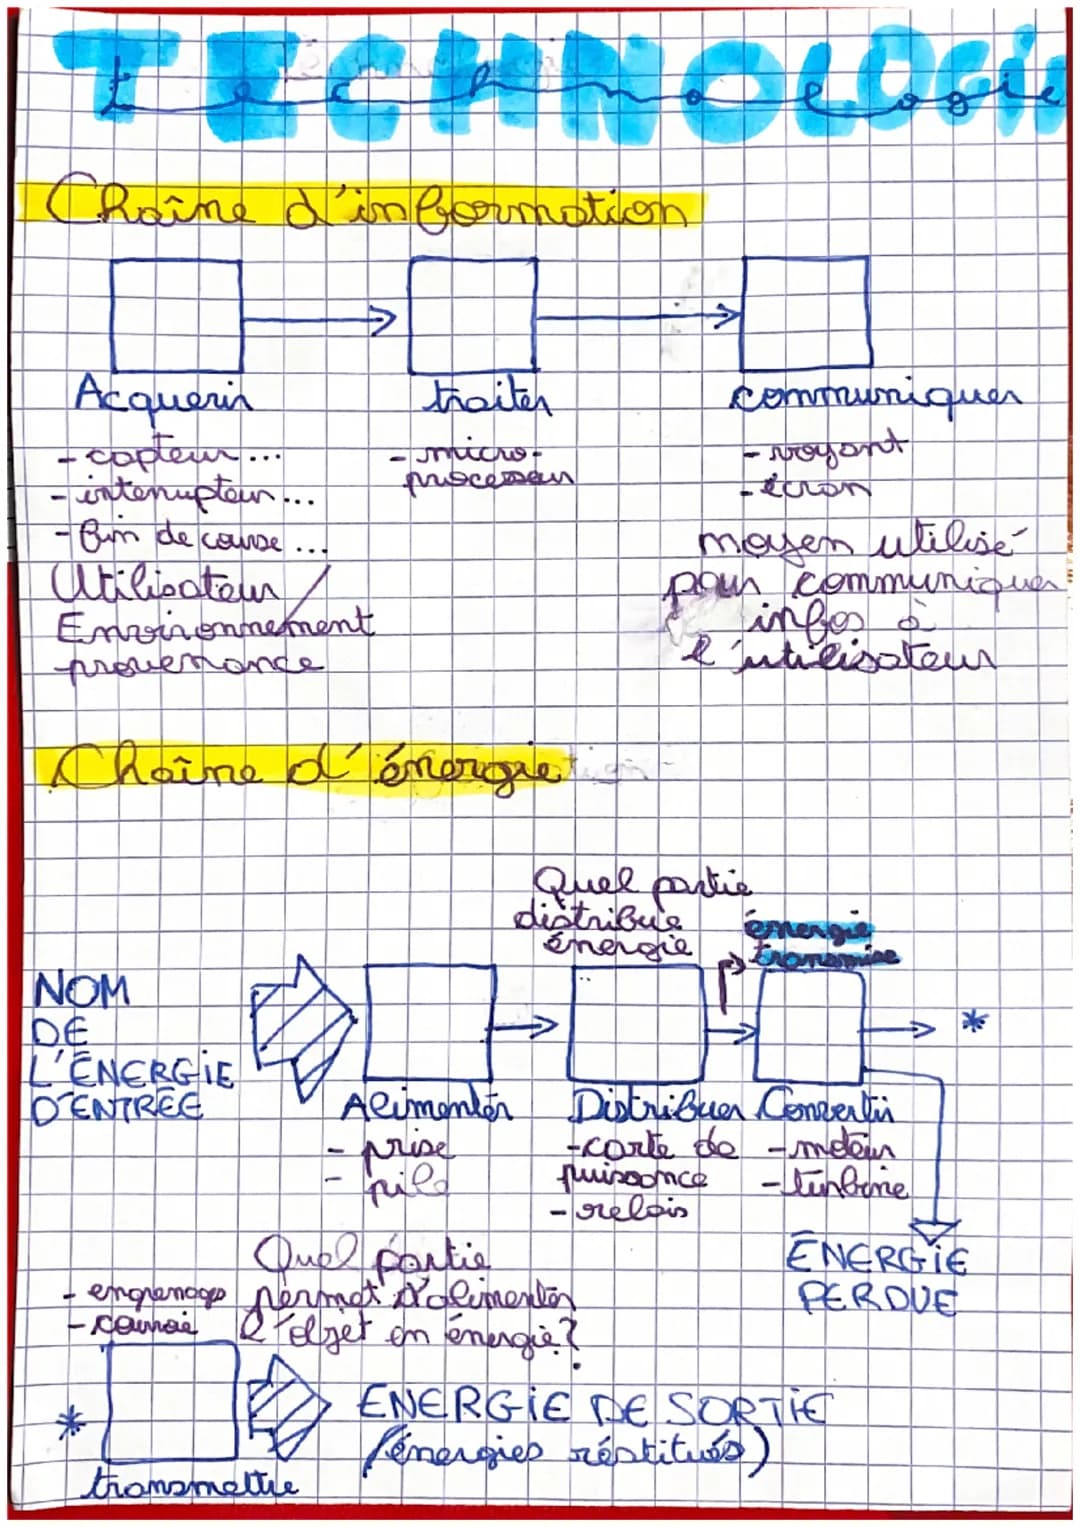 TECHNOLOGIE
technologie
Chaîne d'information
Acquerir
traiter
communiquer
- capteur...
- interrupteur...
- fin de course...
Utilisateur /
Environnement
provenance
- micro-
processeur
- voyant
- écran
moyen utilisé
pour communiquer
infos à
l'utilisateur
Chaîne d'énergie
Quel partie
distribue
énergie
énergie
transmise
NOM
DE
L'ÉNERGIE
D'ENTRÉE
*
Alimenter
- prise
- pile
Distribuer
- carte de
puissance
- relais
Convertir
- moteur
- turbine
ÉNERGIE
PERDUE
Quel partie
permet d'alimenter
l'objet en énergie?
- engrenages
- courroie
*
transmettre
ENERGIE DE SORTIE
(énergies réstitués)